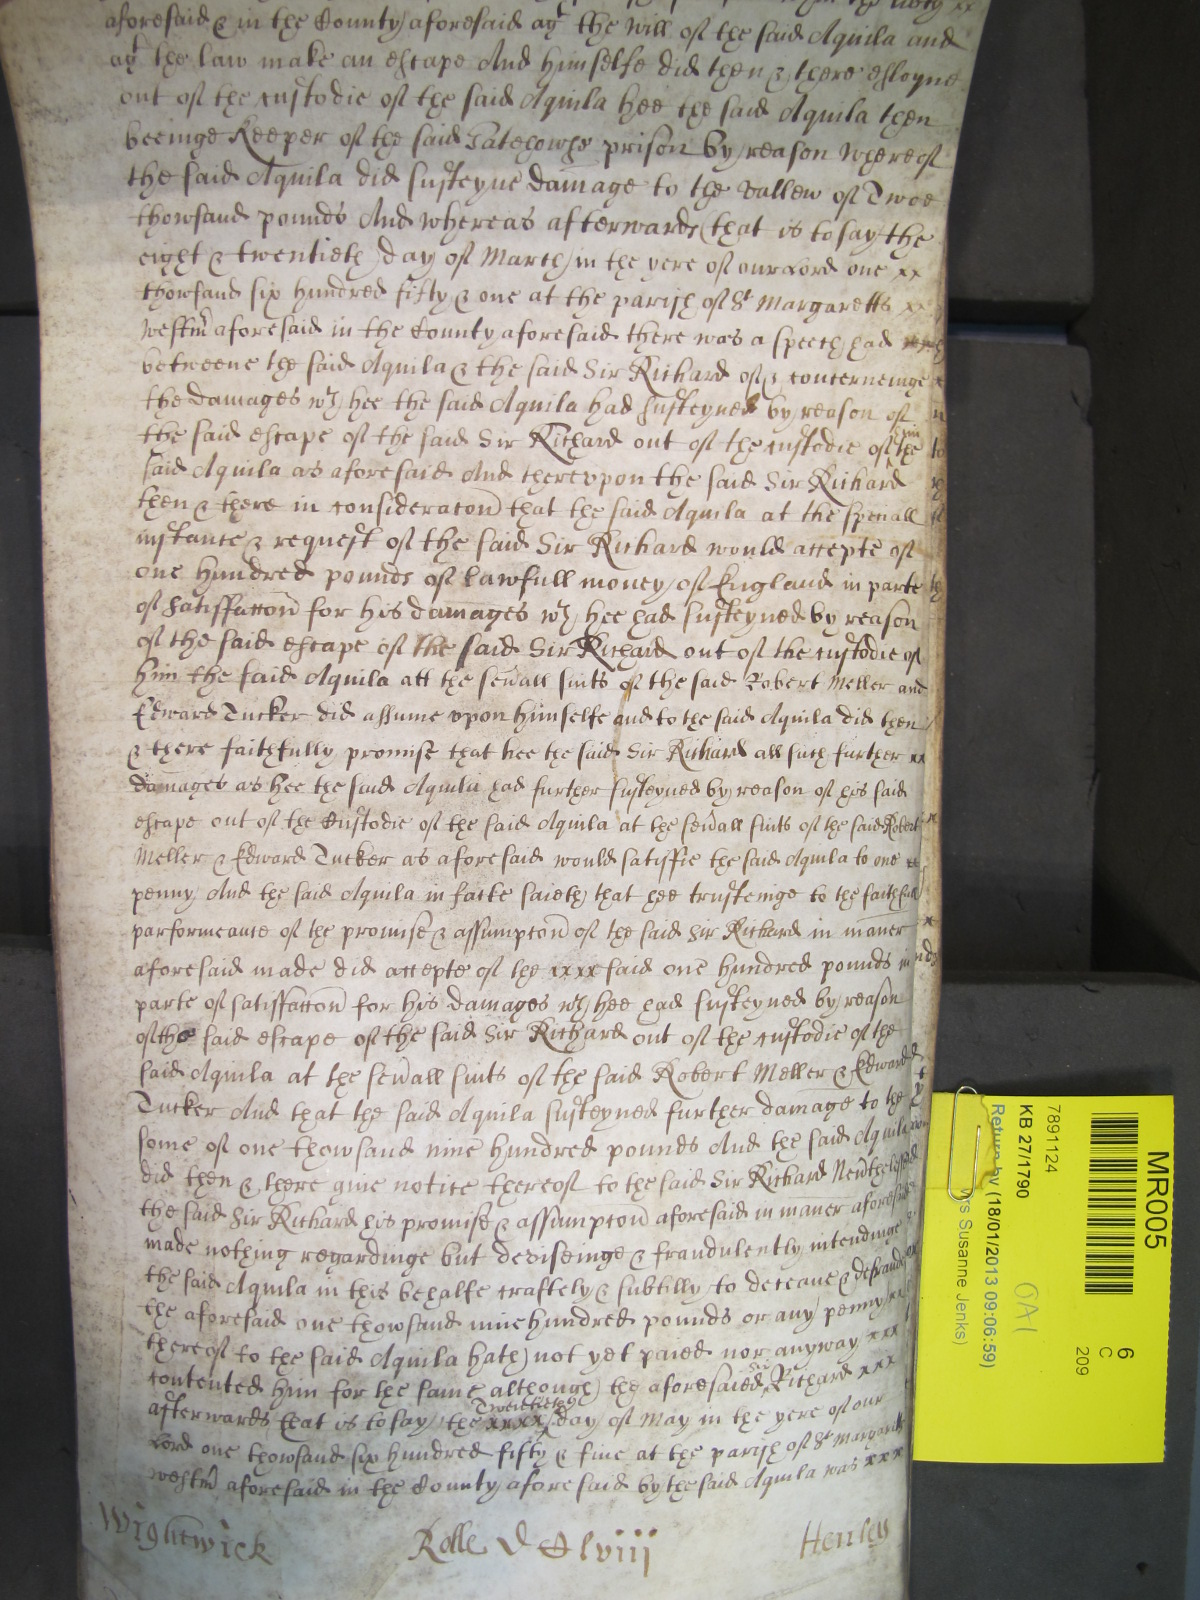 aforesaid & in the County aforesaid agt the will of the said Aquila and
agt the law make an escape And himselfe did then & there esloyne
out of the custodie of the said Aquila hee the said Aquila then
beeinge Keeper of the said Gatehowse prison by reason whereof
the said Aquila did susteyne damage to the vallew of Twoe
thowsand pounds And whereas afterwards (that is to say the
eight & twentieth) day of March in the yere of our Lord one xx
thowsand six hundred fifty & one at the parish of St Margaretts xx
Westmr aforesaid in the County aforesaid there was a speech had
betweene the said Aquila & the said Sir Richard of & concerneinge
the damages wch hee the said Aquila had susteyned by reason of
the said escape of the said Sir Richard out of the custodie of the
said Aquila as aforesaid And therevpon the said Sir Richard
then & there in consideracon that the said Aquila at the speciall
instance & request of the said Sir Richard would accepte of
one hundred pounds of lawfull money of England in parte
of satisfaccon for his damages wch hee had susteyned by reason
of the said escape of the said Sir Richard out of the custodie of
him the said Aquila att the seuall suits of the said Robert Meller and
Edward Tucker did assume vpon himselfe and to the said Aquila did then
& there faithfully promise that hee the said Sir Richard all such further xx
damages as hee the said Aquila had further susteyned by reason of his said
escape out of the Custodie of the said Aquila at the seuall suits of the said Robert
Meller & Edward Tucker as aforesaid would satisfie the said Aquila to one
penny And the said Aquila in facte saieth that hee trusteinge to the faithfull
parformeance of the promise & assumpcon of the said Sir Richard in maner
aforesaid made did accepte of the xxxx said one hundred pounds in
parte of satisfaccon for his damages wch hee had susteyned by reason
of the said escape of the said Sir Richard out of the custodie of the
said Aquila at the seuall suits of the said Robert Meller & Edward
Tucker And that the said Aquila susteyned further damage to the
some of one thowsand nine hundred pounds And the said Aquila
did then & there giue notice thereof to the said Sir Richard Neuthelesse
the said Sir Richard his promise & assumpcon aforesaid in maner aforesaid
made nothing regardinge but deviseinge & fraudulently intendinge
the said Aquila in this behalfe craftely & subtilly to deceaue & defraude
the aforesaid one thowsand nine hundred pounds or any penny xx
thereof to the said Aquila hath not yet paied nor anyway xxx
contented him for the same although the aforesaied Sir Richard xxx
afterwards that is to say the xxxx Twentieth day of May in the yere of our
Lord one thowsand six hundred fifty & fiue at the parish of St Margaretts
Westmr aforesaid in the County aforesaid by the said Aquila was xxx
Wightwick Rolle D C lviii Henley
MR005
6
C
209
7891124
KB 27/1790
Return by (18/01/2013 09:06:59)
Susanne Jenks)
OA1